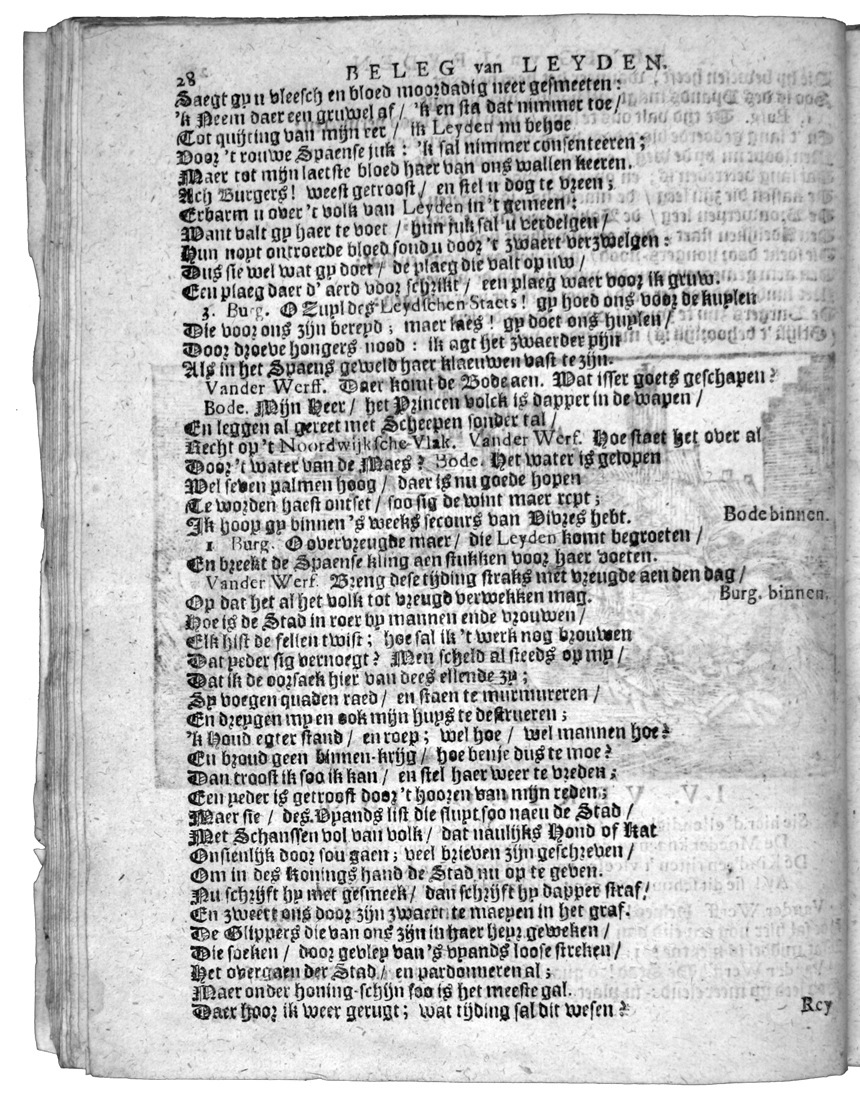 28 BELEG van LEYDEN.
Saegt gy u vleesch en bloed moordadig neer gesmeeten:
'k Neem daer een gruwel af / 'k en sta dat nimmer toe /
Tot quijting van mijn eer / ik Leyden nu behoe
Door 't rouwe Spaense juk: 'k sal nimmer consenteeren;
Maer tot mijn laetste bloed haer van ons wallen keeren.
Ach Burgers! weest getroost / en stel u dog te vreen;
Erbarm u over 't volk van Leyden in 't gemeen:
Want valt gy haer te voet / hun juk sal u verdelgen /
Hun noyt ontroerde bloed sond u door 't zwaert verzwelgen:
Dus sie wel wat gy doet / de plaeg die valt op uw /
Een plaeg daer d' aerd voor schrikt / een plaeg waer voor ik gruw.
3. Burg. O Zuyl des Leydschen Staets! gy hoed ons voor de kuylen
Die voor ons zijn bereyd; maer laes! gy doet ons huylen /
Door droeve hongers nood: ik agt het zwaerder pijn
Als in het Spaens geweld haer klaeuwen vast te zijn.
Vander Werff. Daer komt de Bode aen. Wat isser goets geschapen?
Bode. Mijn Heer / het Princen volck is dapper in de wapen /
En leggen al gereet met Scheepen sonder tal /
Recht op 't Noordwijksche Vlak. Vander Werf. Hoe staet het over al
Door 't water van de Maes? Bode. Het water is gelopen
Wel seven palmen hoog / daer is nu goede hopen
Te worden haest ontset / soo sig de wint maer rept;
Ik hoop gy binnen 's weeks secours van Vivres hebt. Bode binnen.
1 Burg. O overvreugde maer / die Leyden komt begroeten /
En breekt de Spaense kling aen stukken voor haer voeten.
Vander Werf. Breng dese tijding straks met vreugde aen den dag /
Op dat het al het volk tot vreugd verwekken mag. Burg. binnen.
Hoe is de Stad in roer by mannen ende vrouwen /
Elk hist de fellen twist; hoe sal ik 't werk nog brouwen
Dat yeder sig vernoegt? Men scheld al steeds op my /
Dat ik de oorsaek hier van dees ellende zy;
Sy voegen quaden raed / en staen te murmureren /
En dreygen my en ook mijn huys te destrueren;
'k Houd egter stand / en roep; wel hoe / wel mannen hoe?
En broud geen binnen-krijg / hoe benje dus te moe?
Dan troost ik soo ik kan / en stel haer weer te vreden;
Een yeder is getroost door 't hooren van mijn reden;
Maer sie / des Vyands list die sluyt soo naeu de Stad /
Met Schanssen vol van volk / dat naulijks Hond of Kat
Onsienlijk door sou gaen; veel brieven zijn geschreven /
Om in des Konings hand de Stad nu op te geven.
Nu schrijft hy met gesmeek / dan schrijft hy dapper straf /
En zweert ons door zijn zwaert te maeyen in het graf.
De Glippers die van ons zijn in haer heyr geweken /
Die soeken / door gevley van 's vyands loose streken /
Het overgaen der Stad / en pardonneren al;
Maer onder honing-schijn soo is het meeste gal.
Daer hoor ik weer gerugt; wat tijding sal dit wesen?
Rey